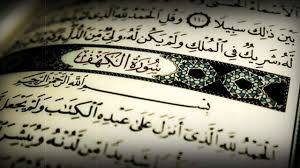 بَيْنَ ذَٰلِكَ سَبِيلًا ﴿١١٠﴾ وَقُلِ الْحَمْدُ لِلَّهِ
لَّهُ شَرِيكٌ فِي الْمُلْكِ وَلَمْ يَكُن لَّهُ وَلِيٌّ مِّنَ الذُّلِّ
سُورَةُ الْكَهْفِ
بِسْمِ اللَّهِ الرَّحْمَٰنِ الرَّحِيمِ
الْحَمْدُ لِلَّهِ الَّذِي أَنزَلَ عَلَىٰ عَبْدِهِ الْكِتَٰبَ وَلَمْ يَجْعَل
شَدِيدًا مِّن لَّدُنْهُ وَيُبَشِّرَ